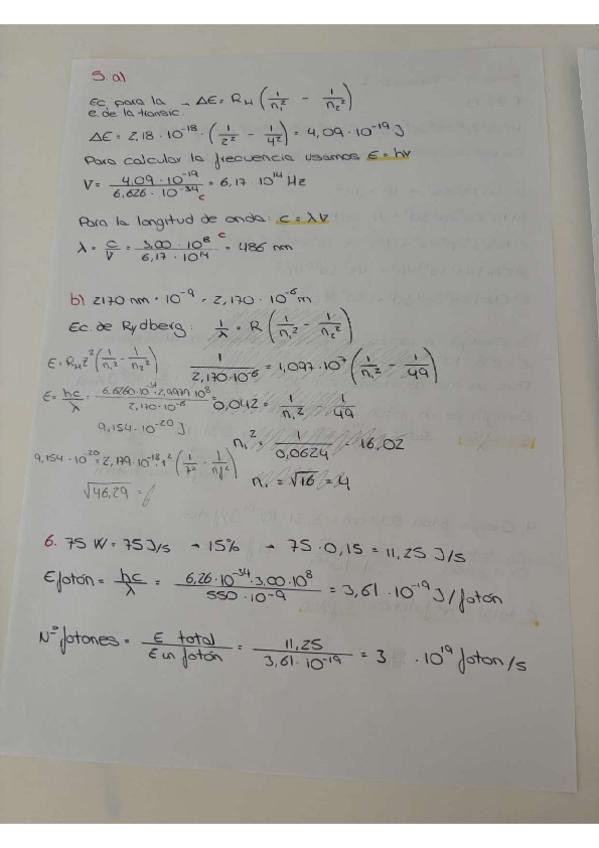 5. a)
Ec. para la e.de la transic. → ΔE = R_H (1/n₁² - 1/n₂²)
ΔE = 2,18 · 10⁻¹⁸ · (1/2² - 1/4²) = 4,09 · 10⁻¹⁹ J
Para calcular la frecuencia usamos E = hν
V = 4,09 · 10⁻¹⁹ / 6,626 · 10⁻³⁴ = 6,17 · 10¹⁴ Hz
c
Para la longitud de onda: c = λν
λ = c/V = 3,00 · 10⁸ / 6,17 · 10¹⁴ = 486 nm
c
b) 2170 nm · 10⁻⁹ = 2,170 · 10⁻⁶ m
Ec. de Rydberg: 1/λ = R (1/n₁² - 1/n₂²)
E = R_H z² (1/n₁² - 1/n₂²)
1 / 2,170·10⁻⁶ = 1,097·10⁷ (1/n₁² - 1/49)
E = hc/λ = 6,6260·10⁻³⁴·2,9979·10⁸ / 2,170·10⁻⁶ =
0,042 = 1/n₁² - 1/49
9,154 · 10⁻²⁰ J
n₁² = 1 / 0,0624 = 16,02
9,154 · 10⁻²⁰ = 2,179·10⁻¹⁸·1² (1/7² - 1/nf²)
n₁ = √16 = 4
√46,29 =
6. 75 W = 75 J/s → 15% → 75 · 0,15 = 11,25 J/s
E fotón = hc/λ = 6,26 · 10⁻³⁴ · 3,00 · 10⁸ / 550 · 10⁻⁹ = 3,61 · 10⁻¹⁹ J/fotón
Nº fotones = E total / E un fotón = 11,25 / 3,61 · 10⁻¹⁹ = 3 · 10¹⁹ foton/s